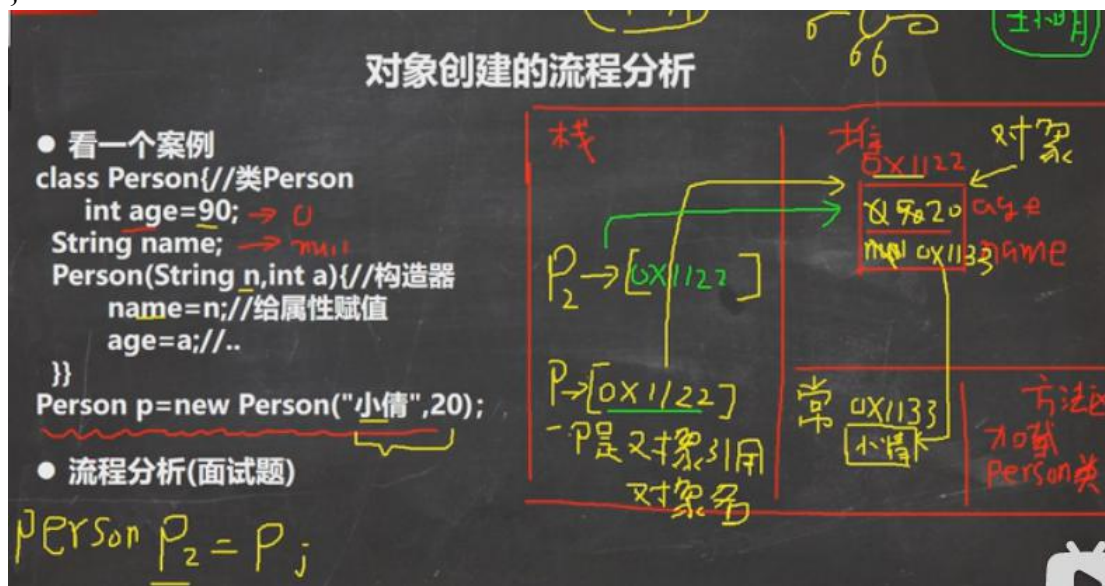 ;
66
对象创建的流程分析
● 看一个案例
class Person{//类Person
int age=90; → 0
String name; → null
Person(String n,int a){//构造器
name=n;//给属性赋值
age=a;//..
}}
Person p=new Person("小倩",20);
● 流程分析(面试题)
person P2 = P;
栈
P2→[0X1122]
P→[0X1122]
P是对象引用
对象名
堆
对象
0X1122
20 age
null 0X1133 name
常
0X1133
小倩
方法区
加载
Person类